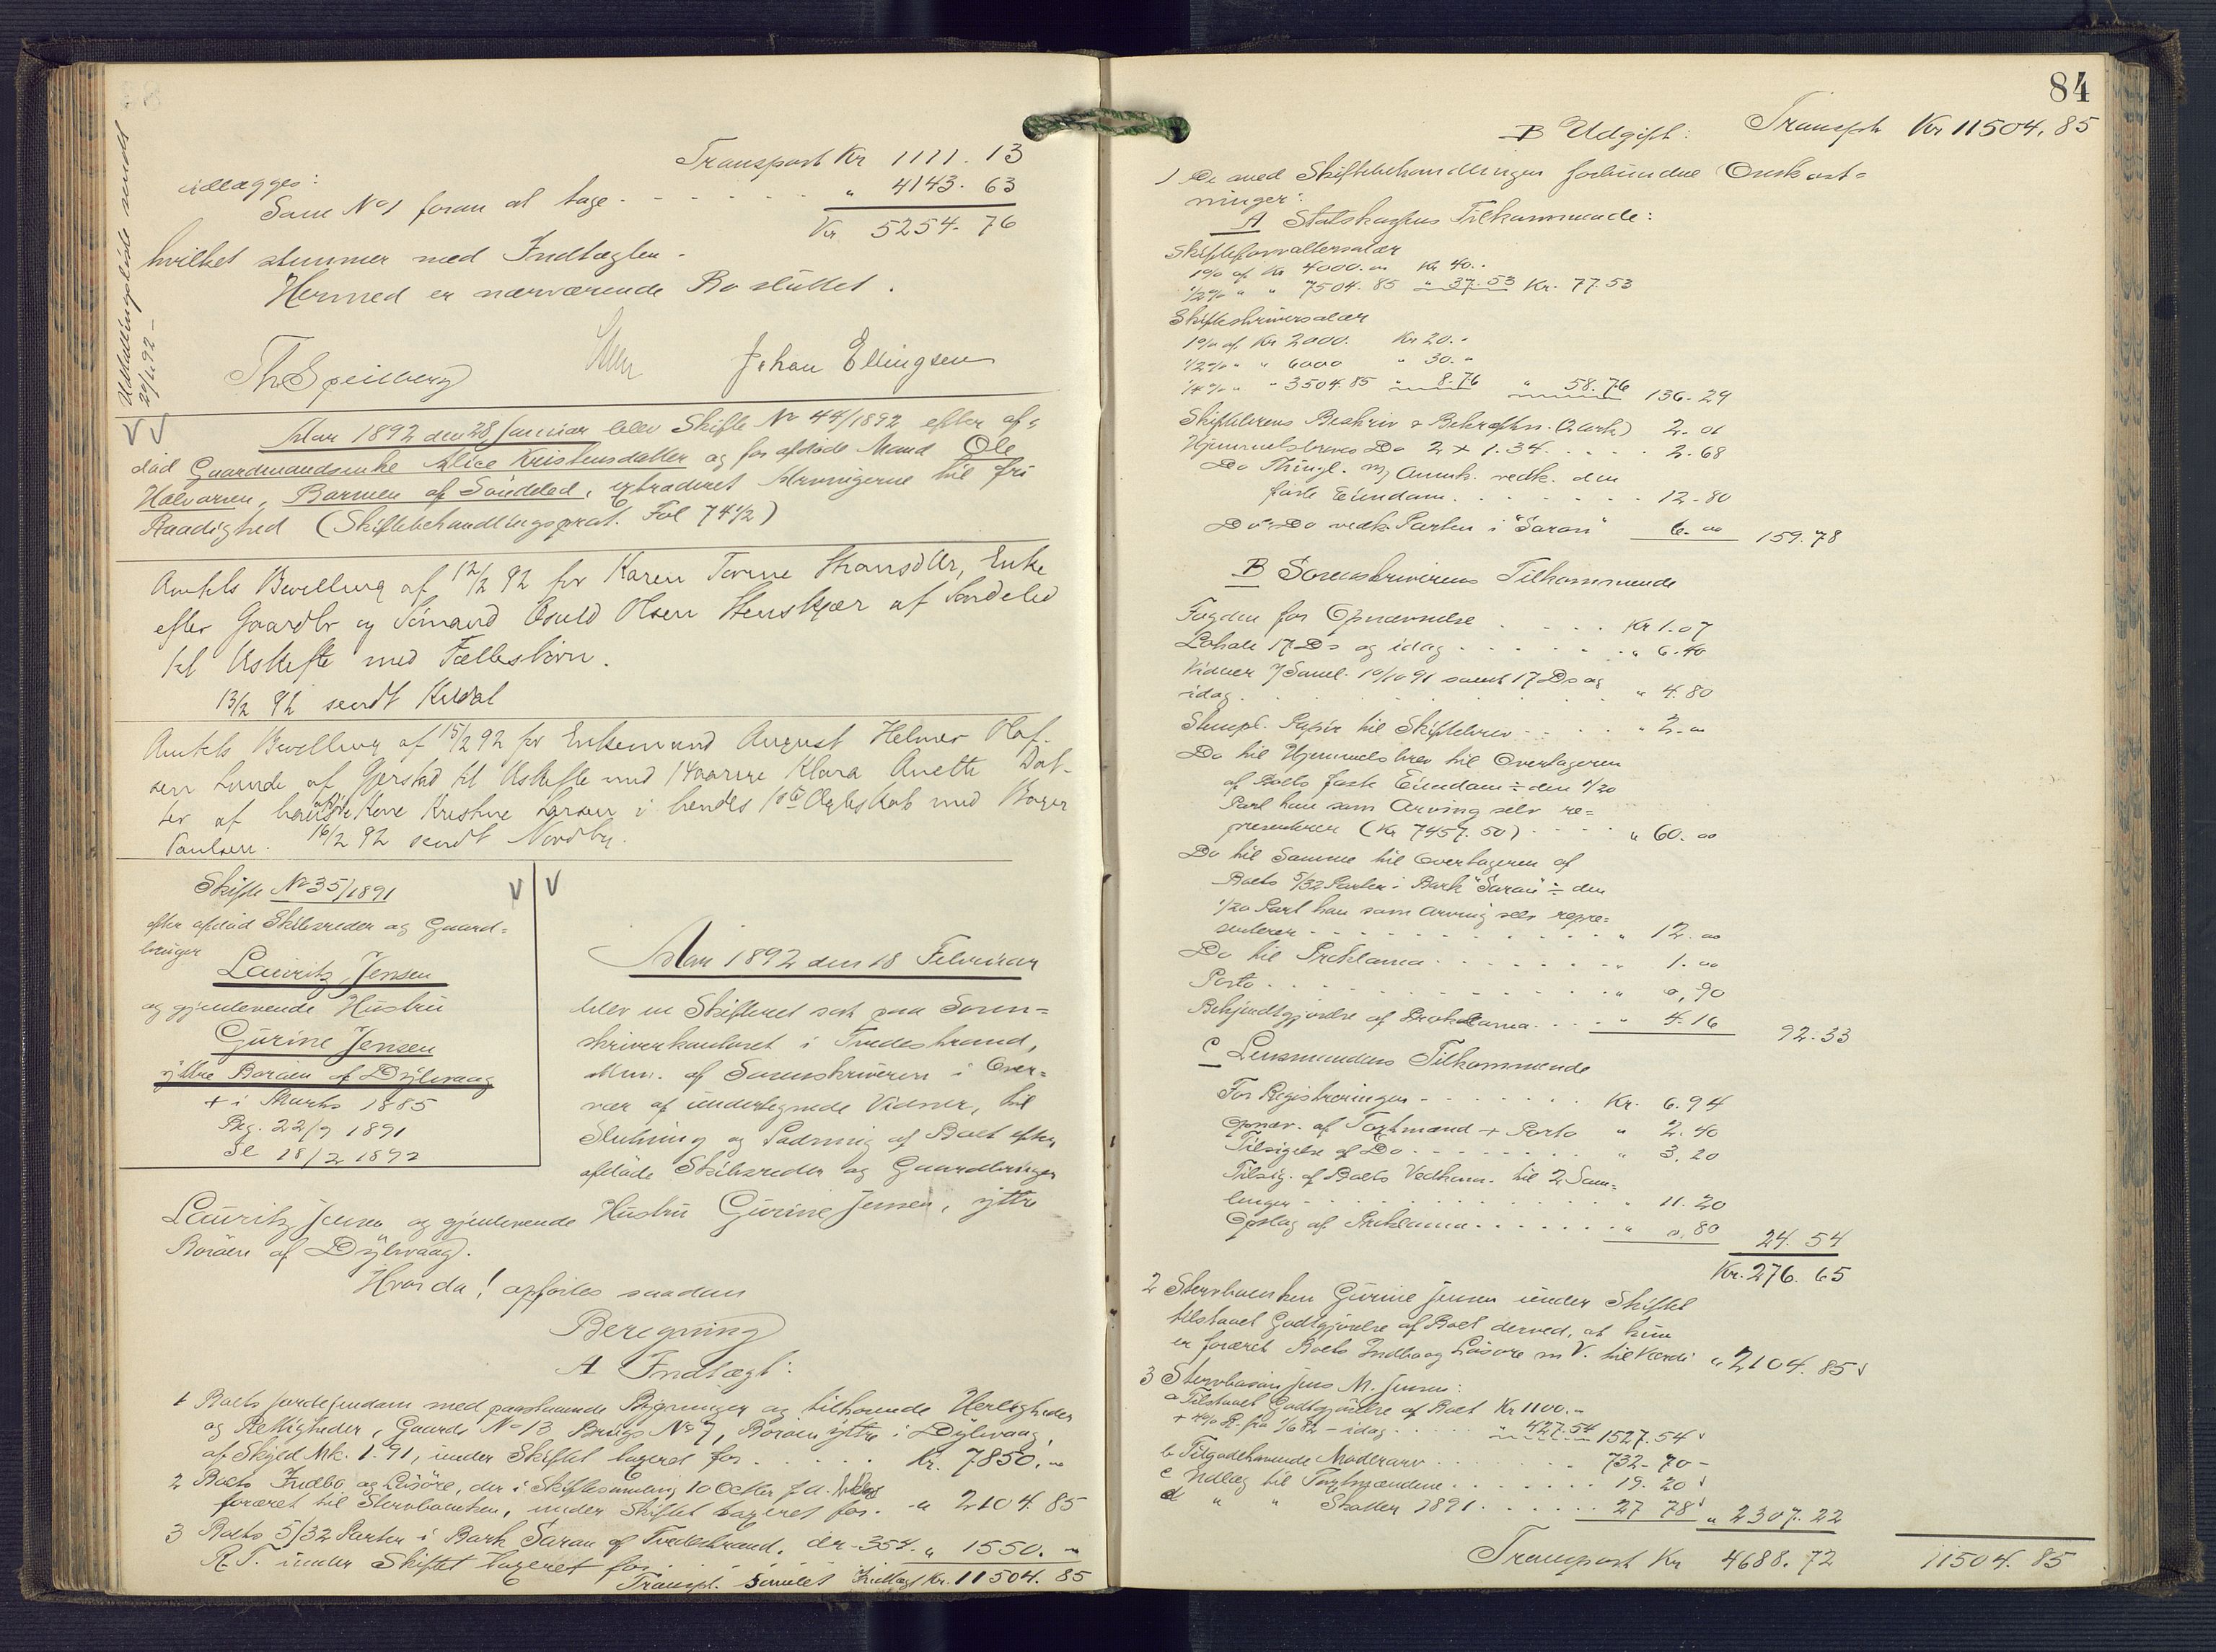 Udskiftningsliste sendt
29/1 92 -
Transport Kr 1111. 13
idlægges:
Som No 1 foran at tage . . . . . . " 4143. 63
Kr 5254. 76
hvilket stemmer med Indtægten.
Hermed er nærværende Bo sluttet.
Th Speilberg
Johan Ellingsen
Aar 1892 den 28 Januar blev Skifte No 44/1892 efter af=
død Gaardmandsenke Alice Kristensdatter og før afdøde Mand Ole
Halvorsen, Barmen af Søndeled, extraderet Arvingerne til fri
Raadighed (Skiftebehandlingsprot. Fol 74 1/2)
Amtets Bevilling af 12/2 92 for Karen Tomine Hansdtr, Enke
efter Gaardbr og Sømand Osuld Olsen Stenskjær af Søndeled
til Udskifte med Fællesbørn.
13/2 92 sendt
Amtets Bevilling af 15/2 92 for Enkemand August Helmer Olaf-
sen Lunde af Gjerstad til Udskifte med 14aarige Klara Anette Dat-
ter af hans afdøde Kone Kristine Larsen i hendes 1ste Ægteskab med
Paulsen. 16/2 92 sendt Nordby.
Skifte No 35/1891
efter afdød Skibsreder og Gaard=
bruger
Lauritz Jensen
og gjenlevende Hustru
Gurine Jensen
yttre Borøen af Dybvaag
+ i Marts 1885
Beg. 22/9 1891
Sl 18/2 1892
Aar 1892 den 18 Februar
blev en Skifteret sat paa Soren=
skriverkontoret i Tvedestrand,
Adm. af Sorenskriveren i Over=
vær af undertegnede Vidner, til
Slutning og Lodning af Boet efter
afdøde Skibsreder og Gaardbruger
Lauritz Jensen og gjenlevende Hustru Gurine Jensen, yttre
Borøen af Dybvaag.
Hvorda! opførtes saadan
Beregning
A Indtægt:
1 Boets Jordejendom med paastaaende Bygninger og tilhørende Herligheder
og Rettigheder, Gaards No 13 Brugs No 7, Borøen yttre i Dybvaag,
af Skyld Mk. 1.91, under Skiftet taxeret for . . . . . Kr. 7850. "
2 Boets Indbo og Løsøre, der i Skiftesamling 10 Octbr f.A. blev
foræret til Stervboenken, under Skiftet taxeret for . " 2104. 85
3 Boets 5/32 Parter i Bark Saran af Tvedestrand. dr. 354. " 1550. "
R.T. under Skiftet taxeret for . . . . .
Transpt. Samlet Indtægt Kr. 11504. 85
84
B Udgift: Transpt Kr 11504. 85
1 De med Skiftebehandlingen forbundne Omkost=
ninger:
A Statskassens Tilkommende:
Skifteforvaltersalær
1% af Kr 4000. " Kr 40. "
1/2% " " 7504. 85 " 37. 53 Kr. 77. 53
Skifteskriversalær
1% af Kr 2000. Kr 20. "
1/2% " " 6000 " 30. "
1/4% " " 3504. 85 " 8. 76 " 58. 76 136. 29
Skiftebrevs Beskriv & Bekræftn. (2 ark) 2. 01
Hjemmelsbreves Do 2 x 1. 34 . . . . . 2. 68
Do Thingl. m/ Anmk. vedk. den
faste Eiendom . . . . . . . 12. 80
Do Do vedk. Parten i "Saran" 6. 00 159. 78
B Sorenskriverens Tilkommende
Fogden for Opnævnelse . . . . Kr 1. 07
Lokale 17 Ds og idag . . . . . . " 6. 40
Vidner 7 Saml. 10/10 91 samt 17 Ds og
idag . . . . . . . " 4. 80
Stempl. Papir til Skiftebrev . . . . " 2. 00
Do til Hjemmelsbrev til Overtageren
af Boets faste Eiendom ÷ den 1/20
Part han som Arving selv re=
presenterer (Kr 7457. 50) . . . . " 60. 00
Do til Samme til Overtageren af
Boets 5/32 Parter i Bark "Saran" ÷ den
1/20 Part han som Arving selv repre=
senterer . . . . . . . . " 12. 00
Do til Proklama . . . . . . . " 1. 00
Porto . . . . . . . . . " 0, 90
Bekjendtgjørelse af Proklama . . . . " 4. 16 92. 33
C Lensmandens Tilkommende
For Registreringen . . . . . Kr. 6. 94
Opnæv. af Taxtmænd + Porto " 2. 40
Tilsigelse af Do . . . . . . . " 3. 20
Tilsig. af Boets Vedkom. til 2 Sam=
linger . . . . . . . . . " 11. 20
Opslag af Proklama . . . . . . " 0, 80 24. 54
Kr. 276. 65
2 Stervboenken Gurine Jensen under Skiftet
tilstaaet Godtgjørelse af Boet derved, at hun
er foræret Boets Indbo og Løsøre m V. til Værdi " 2104. 85
3 Stervbosøn Jens M. Jensen:
a Tilstaaet Godtgjørelse af Boet Kr 1100. "
+ 4% R. fra 1/6 82 - idag . . . . . " 427. 54 1527. 54
b Tilgodehavende Moderarv . . . . . 732. 70 -
c Udlæg til Taxtmændene . . . . . . 19. 20
d " " Skatter 1891 . . . . . . 27 78 " 2307. 22
Transport Kr 4688. 72 11504. 85